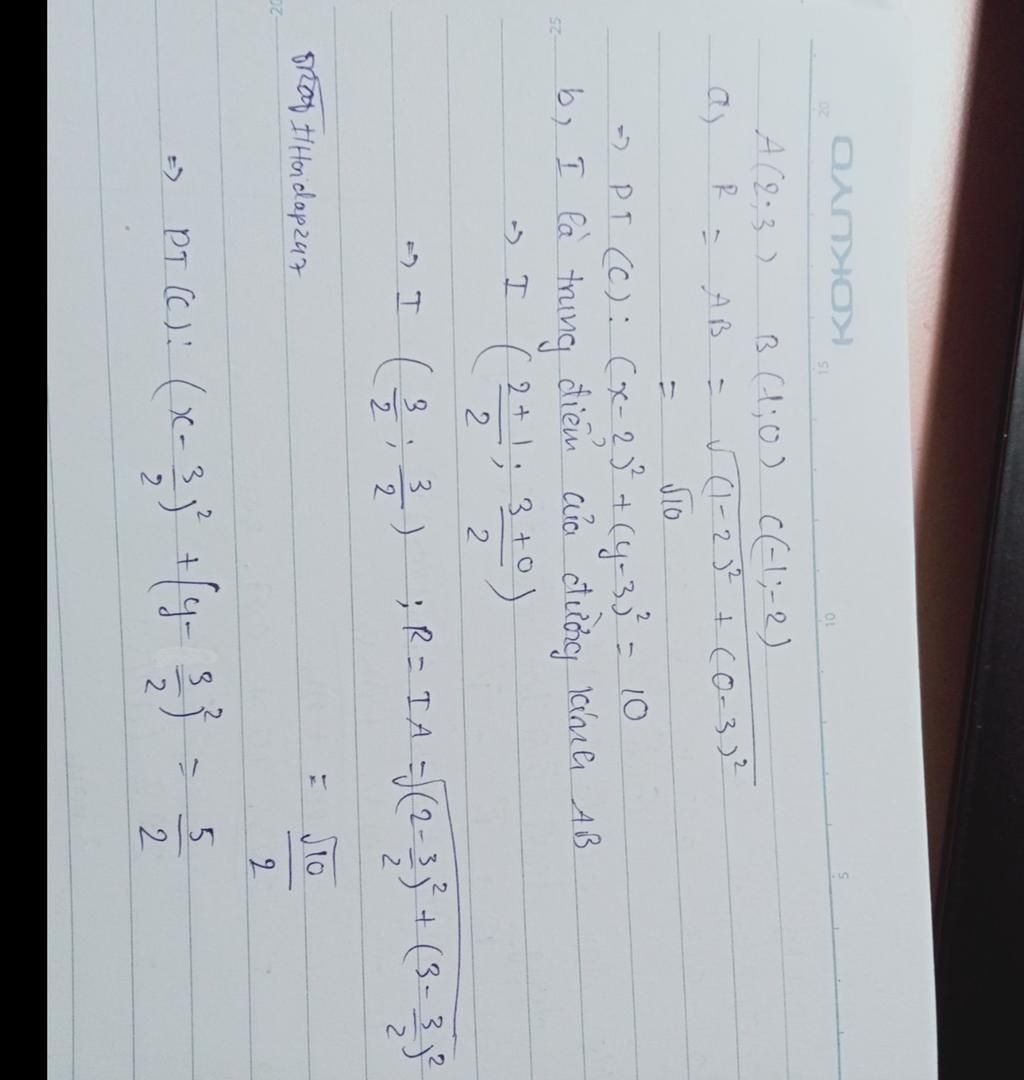 KOKUYO
20 15 10 5
A(2;3) B(1;0) C(-1;-2)
a) R = AB = √((1-2)² + (0-3)²)
= √10
=> PT (C): (x-2)² + (y-3)² = 10
25
b) I là trung điểm của đường kính AB
=> I (2+1/2; 3+0/2)
=> I (3/2; 3/2) ; R = IA = √((2-3/2)² + (3-3/2)²)
20
Hoidap247
= √10/2
=> PT (C): (x-3/2)² + (y-3/2)² = 5/2